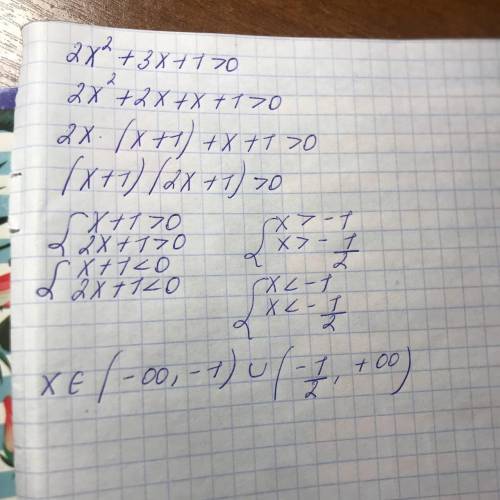 2x² + 3x + 1 > 0
2x² + 2x + x + 1 > 0
2x · (x + 1) + x + 1 > 0
(x + 1) (2x + 1) > 0
{ x + 1 > 0
2x + 1 > 0
{ x + 1 < 0
2x + 1 < 0
{ x > -1
x > -1/2
{ x < -1
x < -1/2
x ∈ (-∞, -1) ∪ (-1/2, +∞)